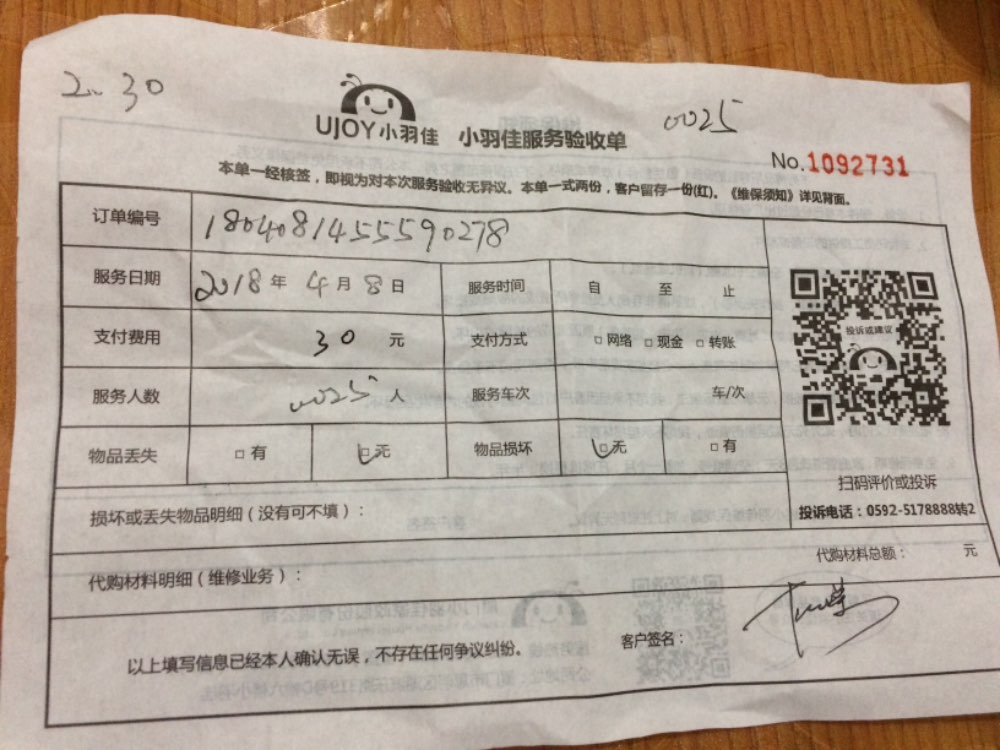 2:30
0025
UJOY小羽佳 小羽佳服务验收单
No.1092731
本单一经核签,即视为对本次服务验收无异议。本单一式两份,客户留存一份(红)。《维保须知》详见背面。
订单编号 1804081455590278
服务日期 2018年4月8日 服务时间 自 至 止
支付费用 30 元 支付方式 □网络 □现金 □转账
投诉或建议
服务人数 0025人 服务车次 车/次
物品丢失 □有 □无 物品损坏 □无 □有
扫码评价或投诉
投诉电话:0592-5178888转2
损坏或丢失物品明细(没有可不填):
代购材料明细(维修业务): 代购材料总额: 元
以上填写信息已经本人确认无误,不存在任何争议纠纷。 客户签名: